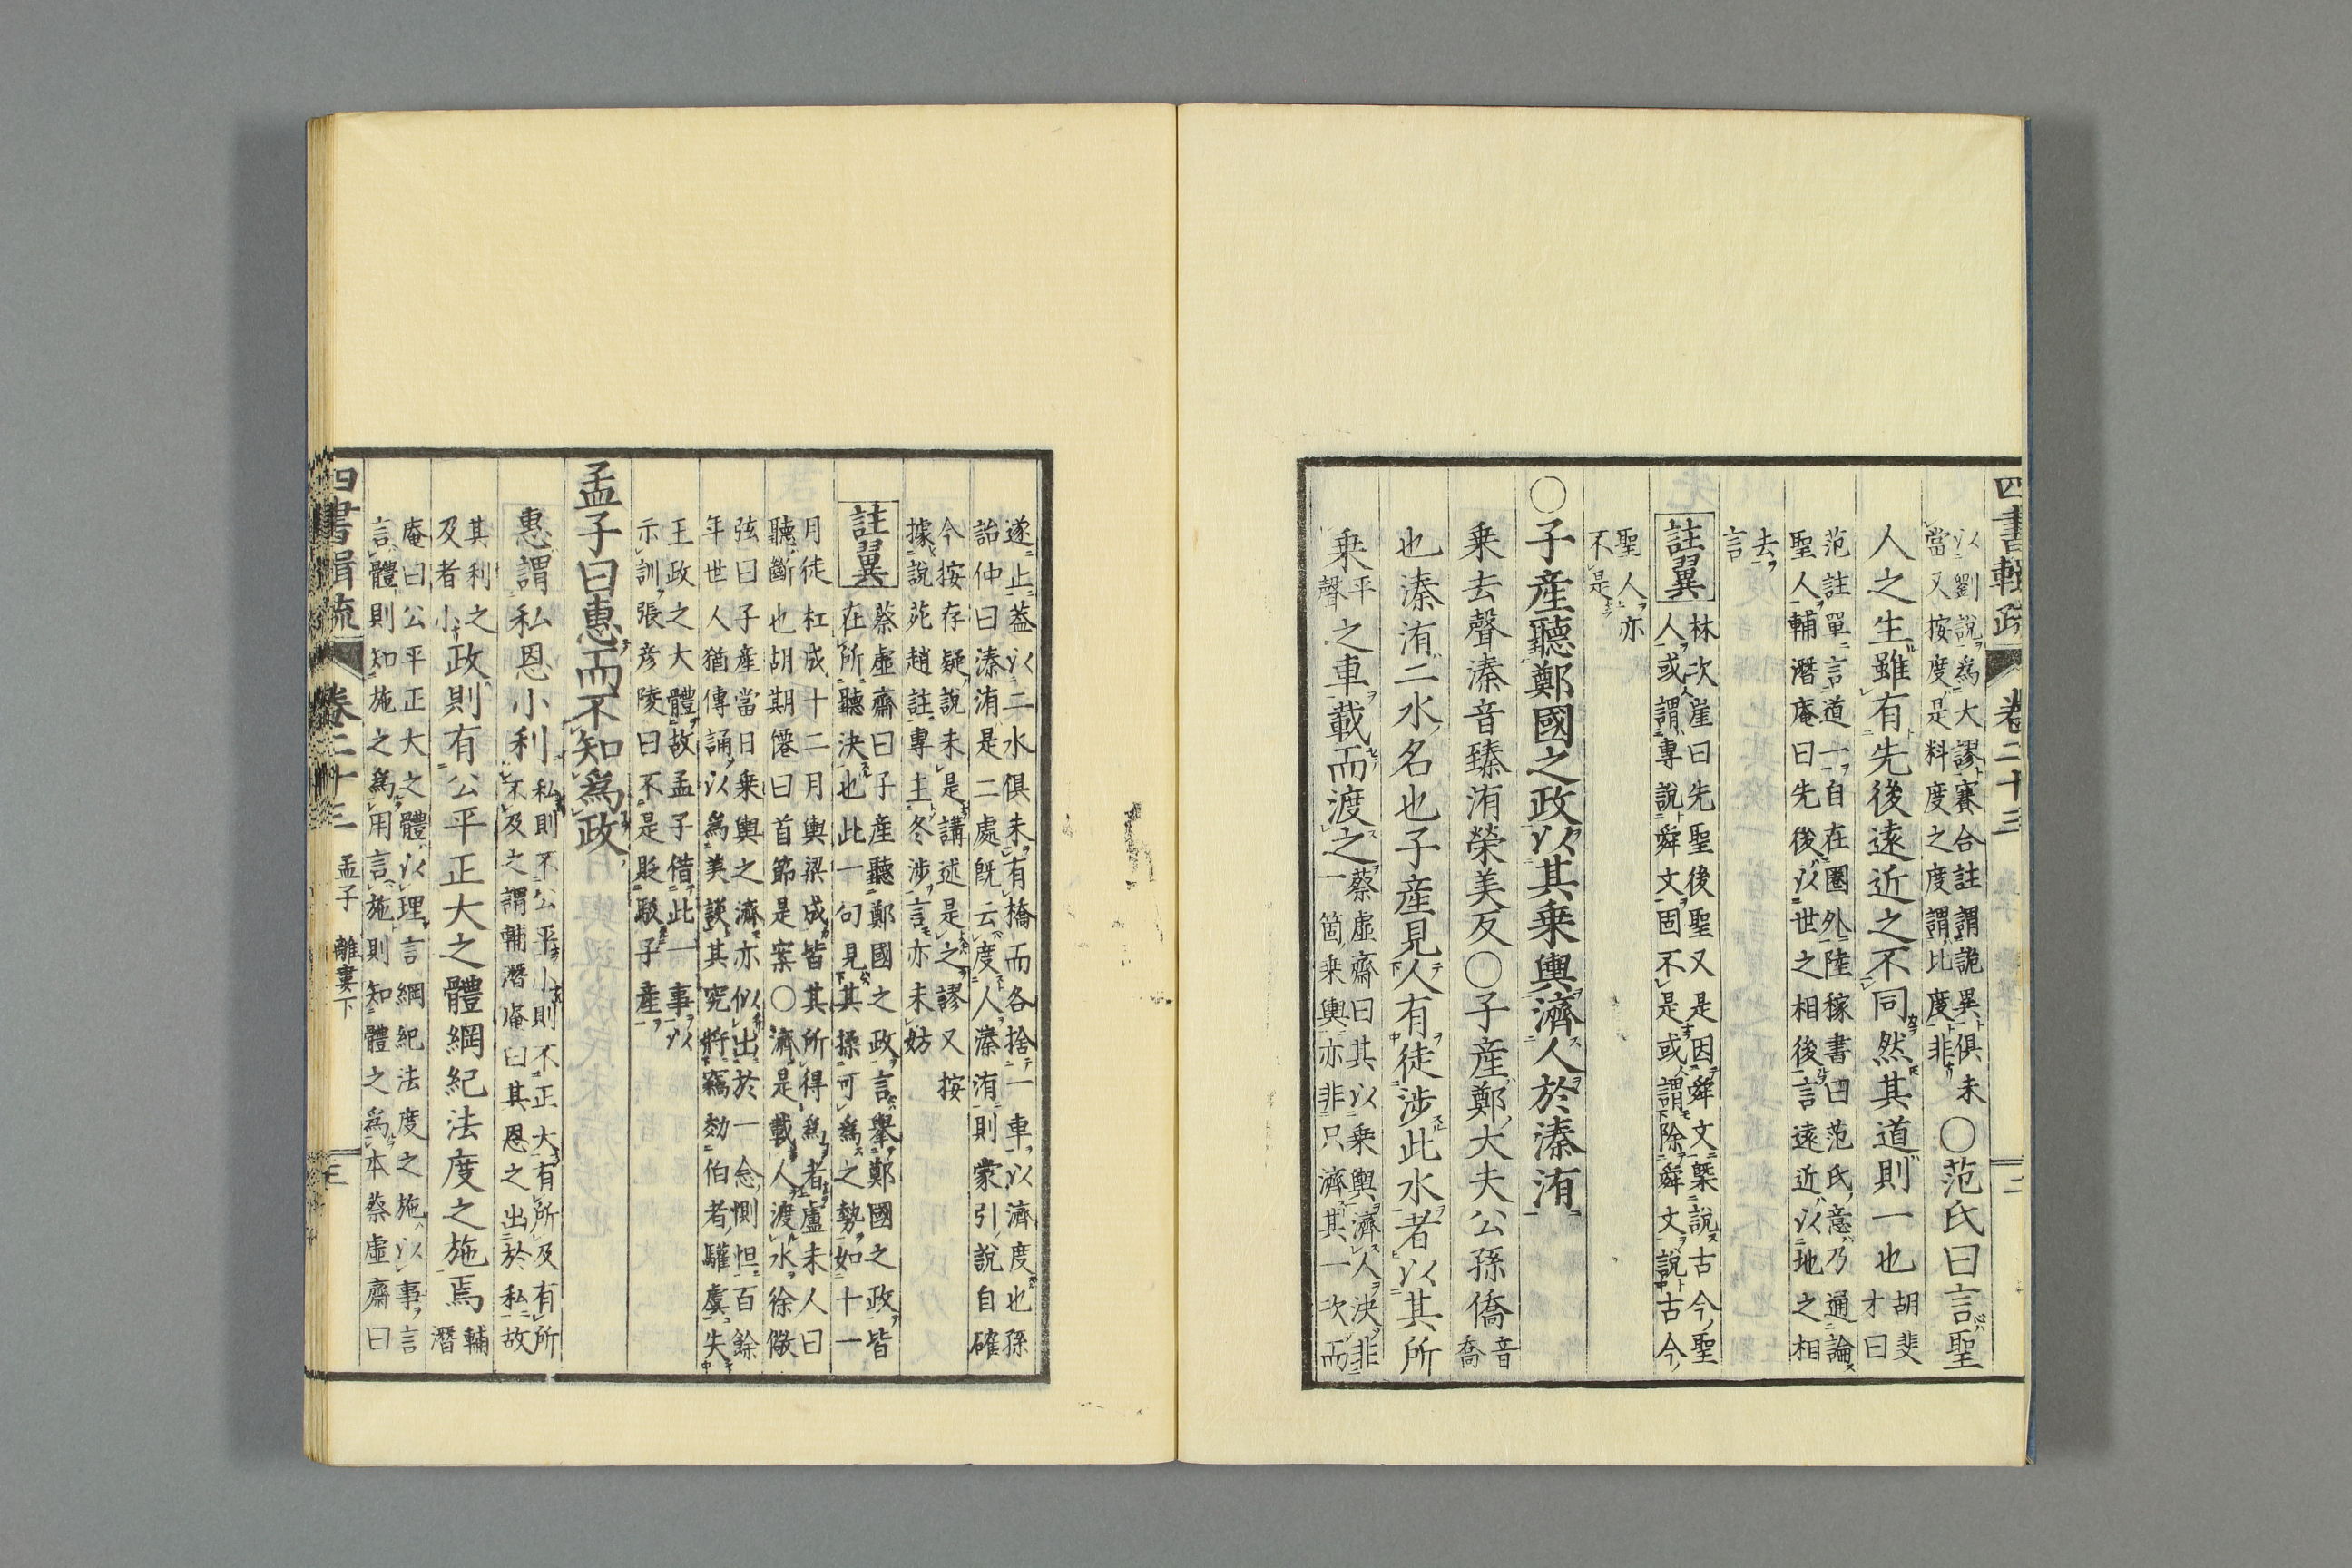 四書輯疏 卷二十三 二
以劉說爲大謬賽合註謂詭異俱未
當又按度是料度之度謂比度非
○范氏曰言聖
人之生雖有先後遠近之不同然其道則一也
胡斐
才曰
范註單言道一自在圈外陸稼書曰范氏意乃通論
聖人輔潛庵曰先後以世之相後言遠近以地之相
去
言
註翼
林次崖曰先聖後聖又是因舜文槩說古今聖
人或謂專說舜文固不是或謂除舜文說古今
聖人亦
不是
○子產聽鄭國之政以其乗輿濟人於溱洧
乗去聲溱音臻洧榮美反○子產鄭大夫公孫僑
音
喬
也溱洧二水名也子產見人有徒涉此水者以其所
乗
平
聲
之車載而渡之
蔡虛齋曰其以乗輿濟人決非
一箇乗輿亦非只濟其一次而
遂止蓋以二水俱未有橋而各捨一車以濟度也孫
詒仲曰溱洧是二處旣云度人溱洧則蒙引說自確
今按存疑說未是講述是之謬又按
據說苑趙註專主冬涉言亦未妨
註翼
蔡虛齋曰子產聽鄭國之政言擧鄭國之政皆
在所聽決也此一句見其操可爲之勢如十一
月徒杠成十二月輿梁成皆其所得爲者盧未人曰
聽斷也胡期僊曰首節是案○濟是載人渡水徐儆
弦曰子產當日乗輿之濟亦似出於一念惻怛百餘
年世人猶傳誦以爲美談其究將竊効伯者驩虞失
王政之大體故孟子借此一事以
示訓張彥陵曰不是貶駁子產
孟子曰惠而不知爲政
惠謂私恩小利
私則不公平小則不正大有所及有所
不及之謂輔潛庵曰其恩之出於私故
其利之
及者小
政則有公平正大之體綱紀法度之施焉
輔
潛
庵曰公平正大之體以理言綱紀法度之施以事言
言體則知施之爲用言施則知體之爲本蔡虛齋曰
四書輯疏 卷二十三 孟子 離婁下 三